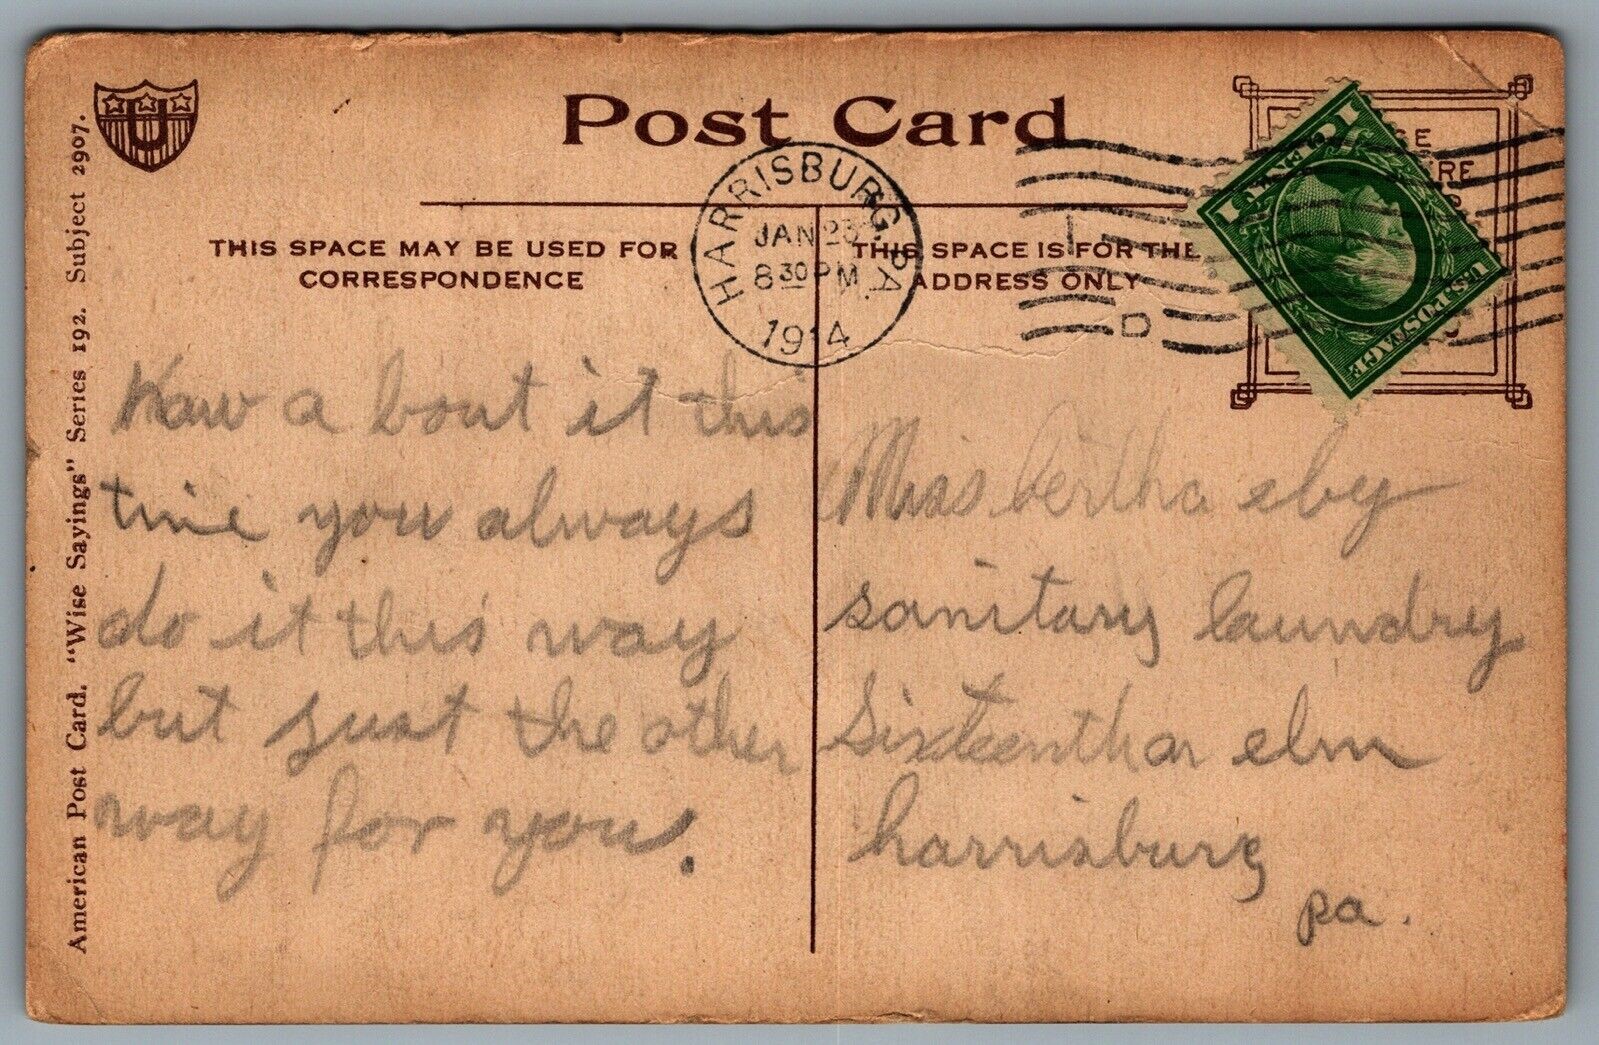 Post Card
HARRISBURG, PA.
JAN 23
8 30 PM
1914
D
1 CENT 1
U.S. POSTAGE
THIS SPACE MAY BE USED FOR
CORRESPONDENCE
THIS SPACE IS FOR THE
ADDRESS ONLY
American Post Card. "Wise Sayings" Series 192. Subject 2907.
U
Haw a bout it this
time you always
do it this way
but just the other
way for you.
Miss bertha eby
sanitary laundry
Sixteenth an elm
harrisburg
pa.